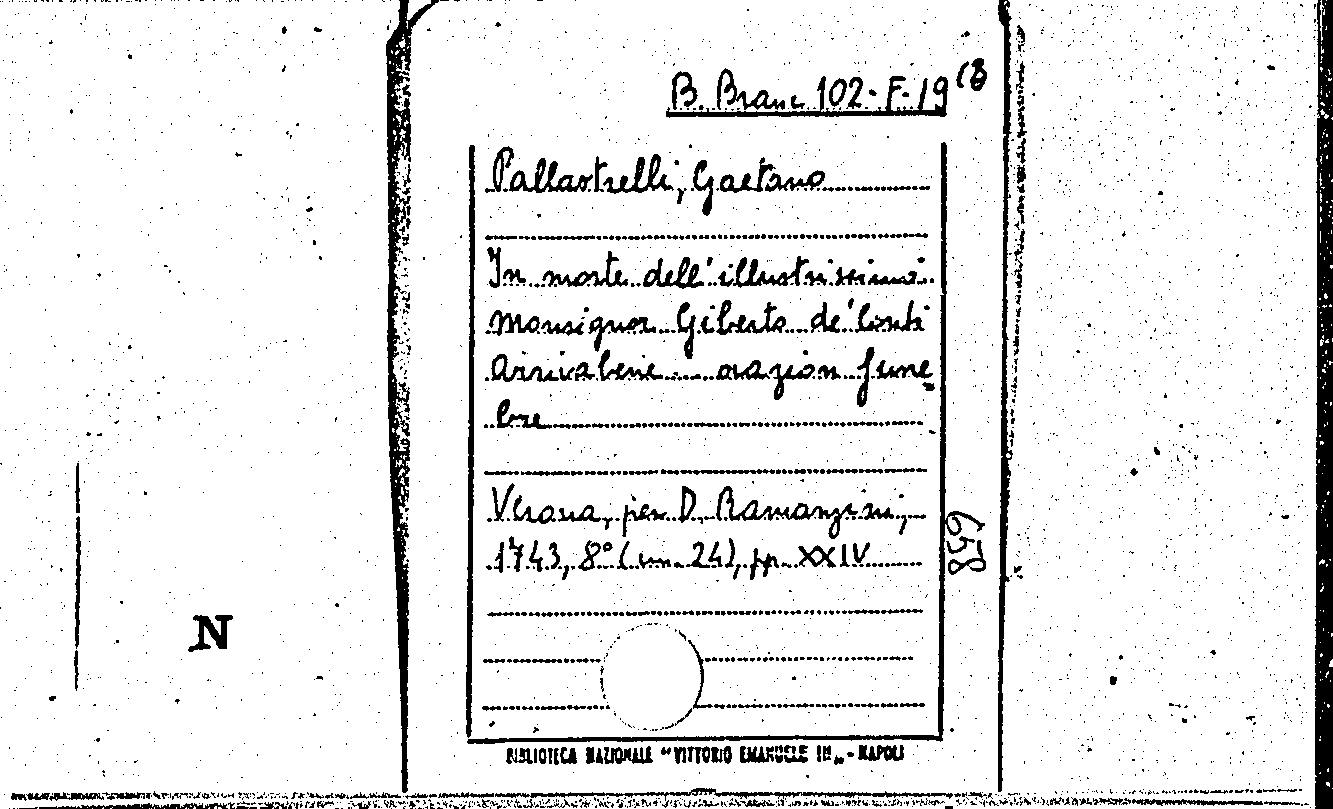 B. Branc 102-F-19 (8
Pallastrelli, Gaetano
In morte dell'illustrissimo
Monsignor Giberto de' Conti
Arrivabene orazion fune
bre
Verona, per D. Ramanzini,
1743, 8° (cm. 24), pp. XXIV
658
N
BIBLIOTECA NAZIONALE "VITTORIO EMANUELE III„ - NAPOLI